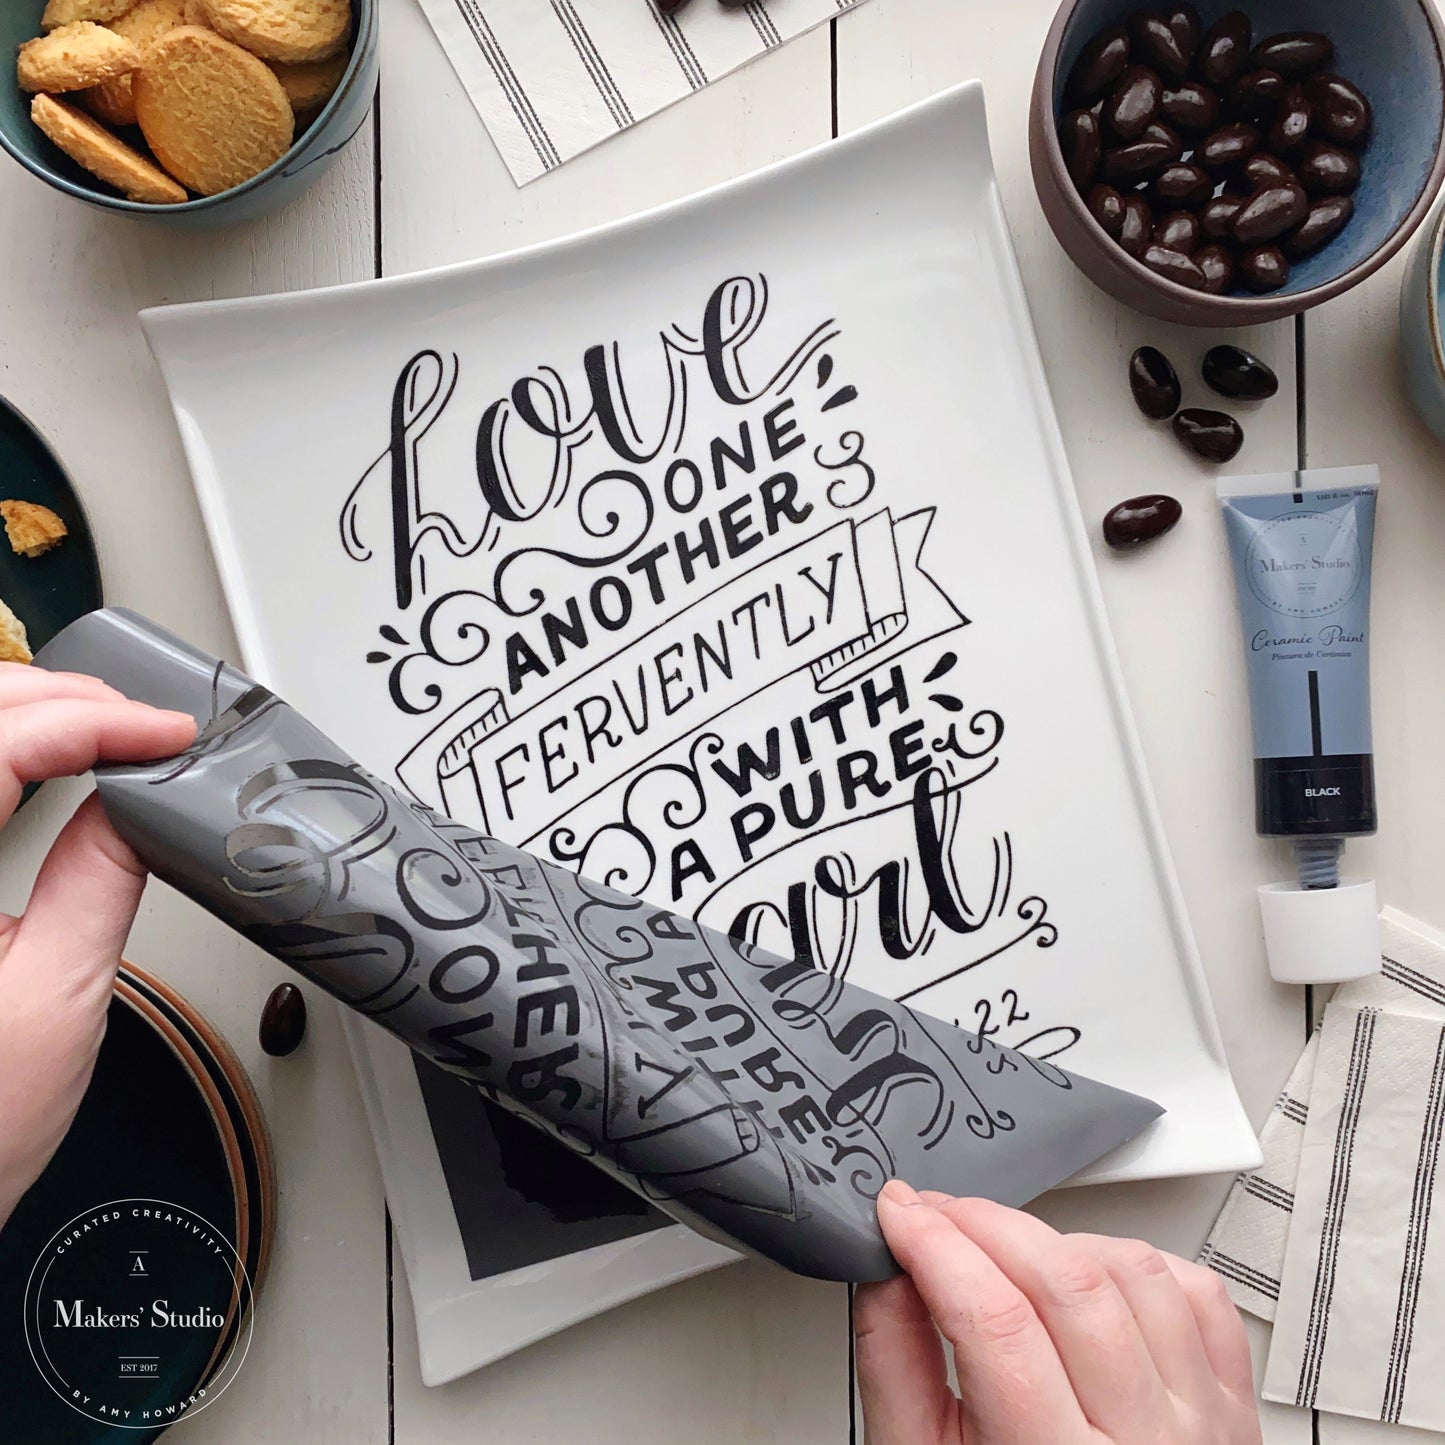 Love
ONE
ANOTHER
FERVENTLY
WITH
A PURE
1.69 fl. oz. 50ml
A
Makers' Studio
EST 2017
BY AMY HOWARD
Ceramic Paint
Pintura de Cerámica
BLACK
CURATED CREATIVITY
A
Makers' Studio
EST 2017
BY AMY HOWARD